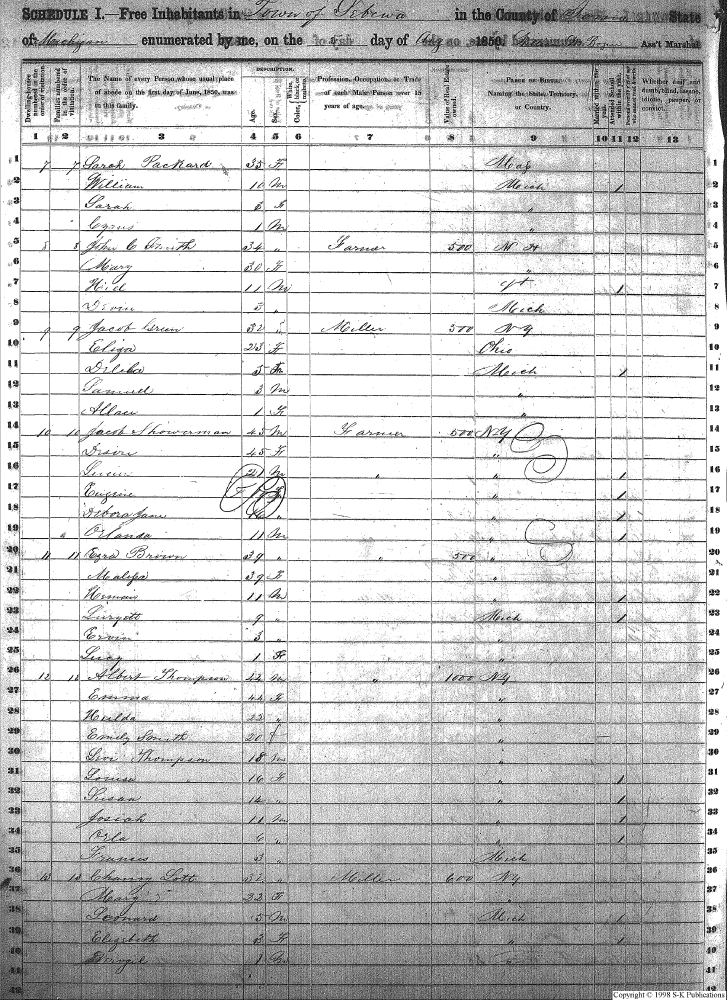 SCHEDULE I.—Free Inhabitants in Town of Sebewa in the County of State
of Michigan enumerated by me, on the day of 1850. Ass't Marshal
Dwelling-houses numbered in the order of visitation.
Families numbered in the order of visitation.
The Name of every Person whose usual place of abode on the first day of June, 1850, was in this family.
DESCRIPTION.
Age.
Sex.
Color, White, black, or mulatto.
Profession, Occupation, or Trade of each Male Person over 15 years of age.
Value of Real Estate owned.
PLACE OF BIRTH. Naming the State, Territory, or Country.
Married within the year.
Attended School within the year.
Whether deaf and dumb, blind, insane, idiotic, pauper, or convict.
1 2 3 4 5 6 7 8 9 10 11 12 13
1 7 7 Sarah Packard 35 F 1
2 William 10 M Mich / 2
3 Sarah F " 3
4 Cyrus 1 M " 4
5 8 8 John C Smith 34 " Farmer 500 N H 5
6 Mary 30 F " 6
7 11 M Vt / 7
8 " Mich 8
9 9 9 Jacob Green 32 " Miller 300 NY 9
10 Eliza 23 F Ohio 10
11 5 Mich / 11
12 Samuel 3 M " 12
13 1 F " 13
14 10 10 Jacob Showerman 45 M Farmer 500 NY 14
15 45 F " 15
16 21 M " " / 16
17 Eugene F " / 17
18 Debora Jane 16 " " / 18
19 " Orlando 11 M " / 19
20 11 11 Ezra Brown 39 " " 500 " 20
21 39 F " 21
22 Heman 11 M " / 22
23 9 " Mich / 23
24 Ervin 3 " " 24
25 Lucy 1 F " 25
26 12 12 Albert Thompson 42 M " 1000 NY 26
27 Emma 44 F " 27
28 Hulda 22 " " 28
29 Emily Smith 20 f " 29
30 Thompson 18 M " 30
31 Louisa 16 F " / 31
32 Susan 14 " " / 32
33 Josiah 11 M " / 33
34 Orla 6 " " / 34
35 Francis 3 " Mich 35
36 13 13 Chancy Lott 32 " Miller 600 NY 36
37 Mary 22 F " 37
38 Leonard 5 M Mich / 38
39 Elizabeth 3 F " / 39
40 1 M " 40
41 41
42 42
Copyright © 1998 S-K Publications